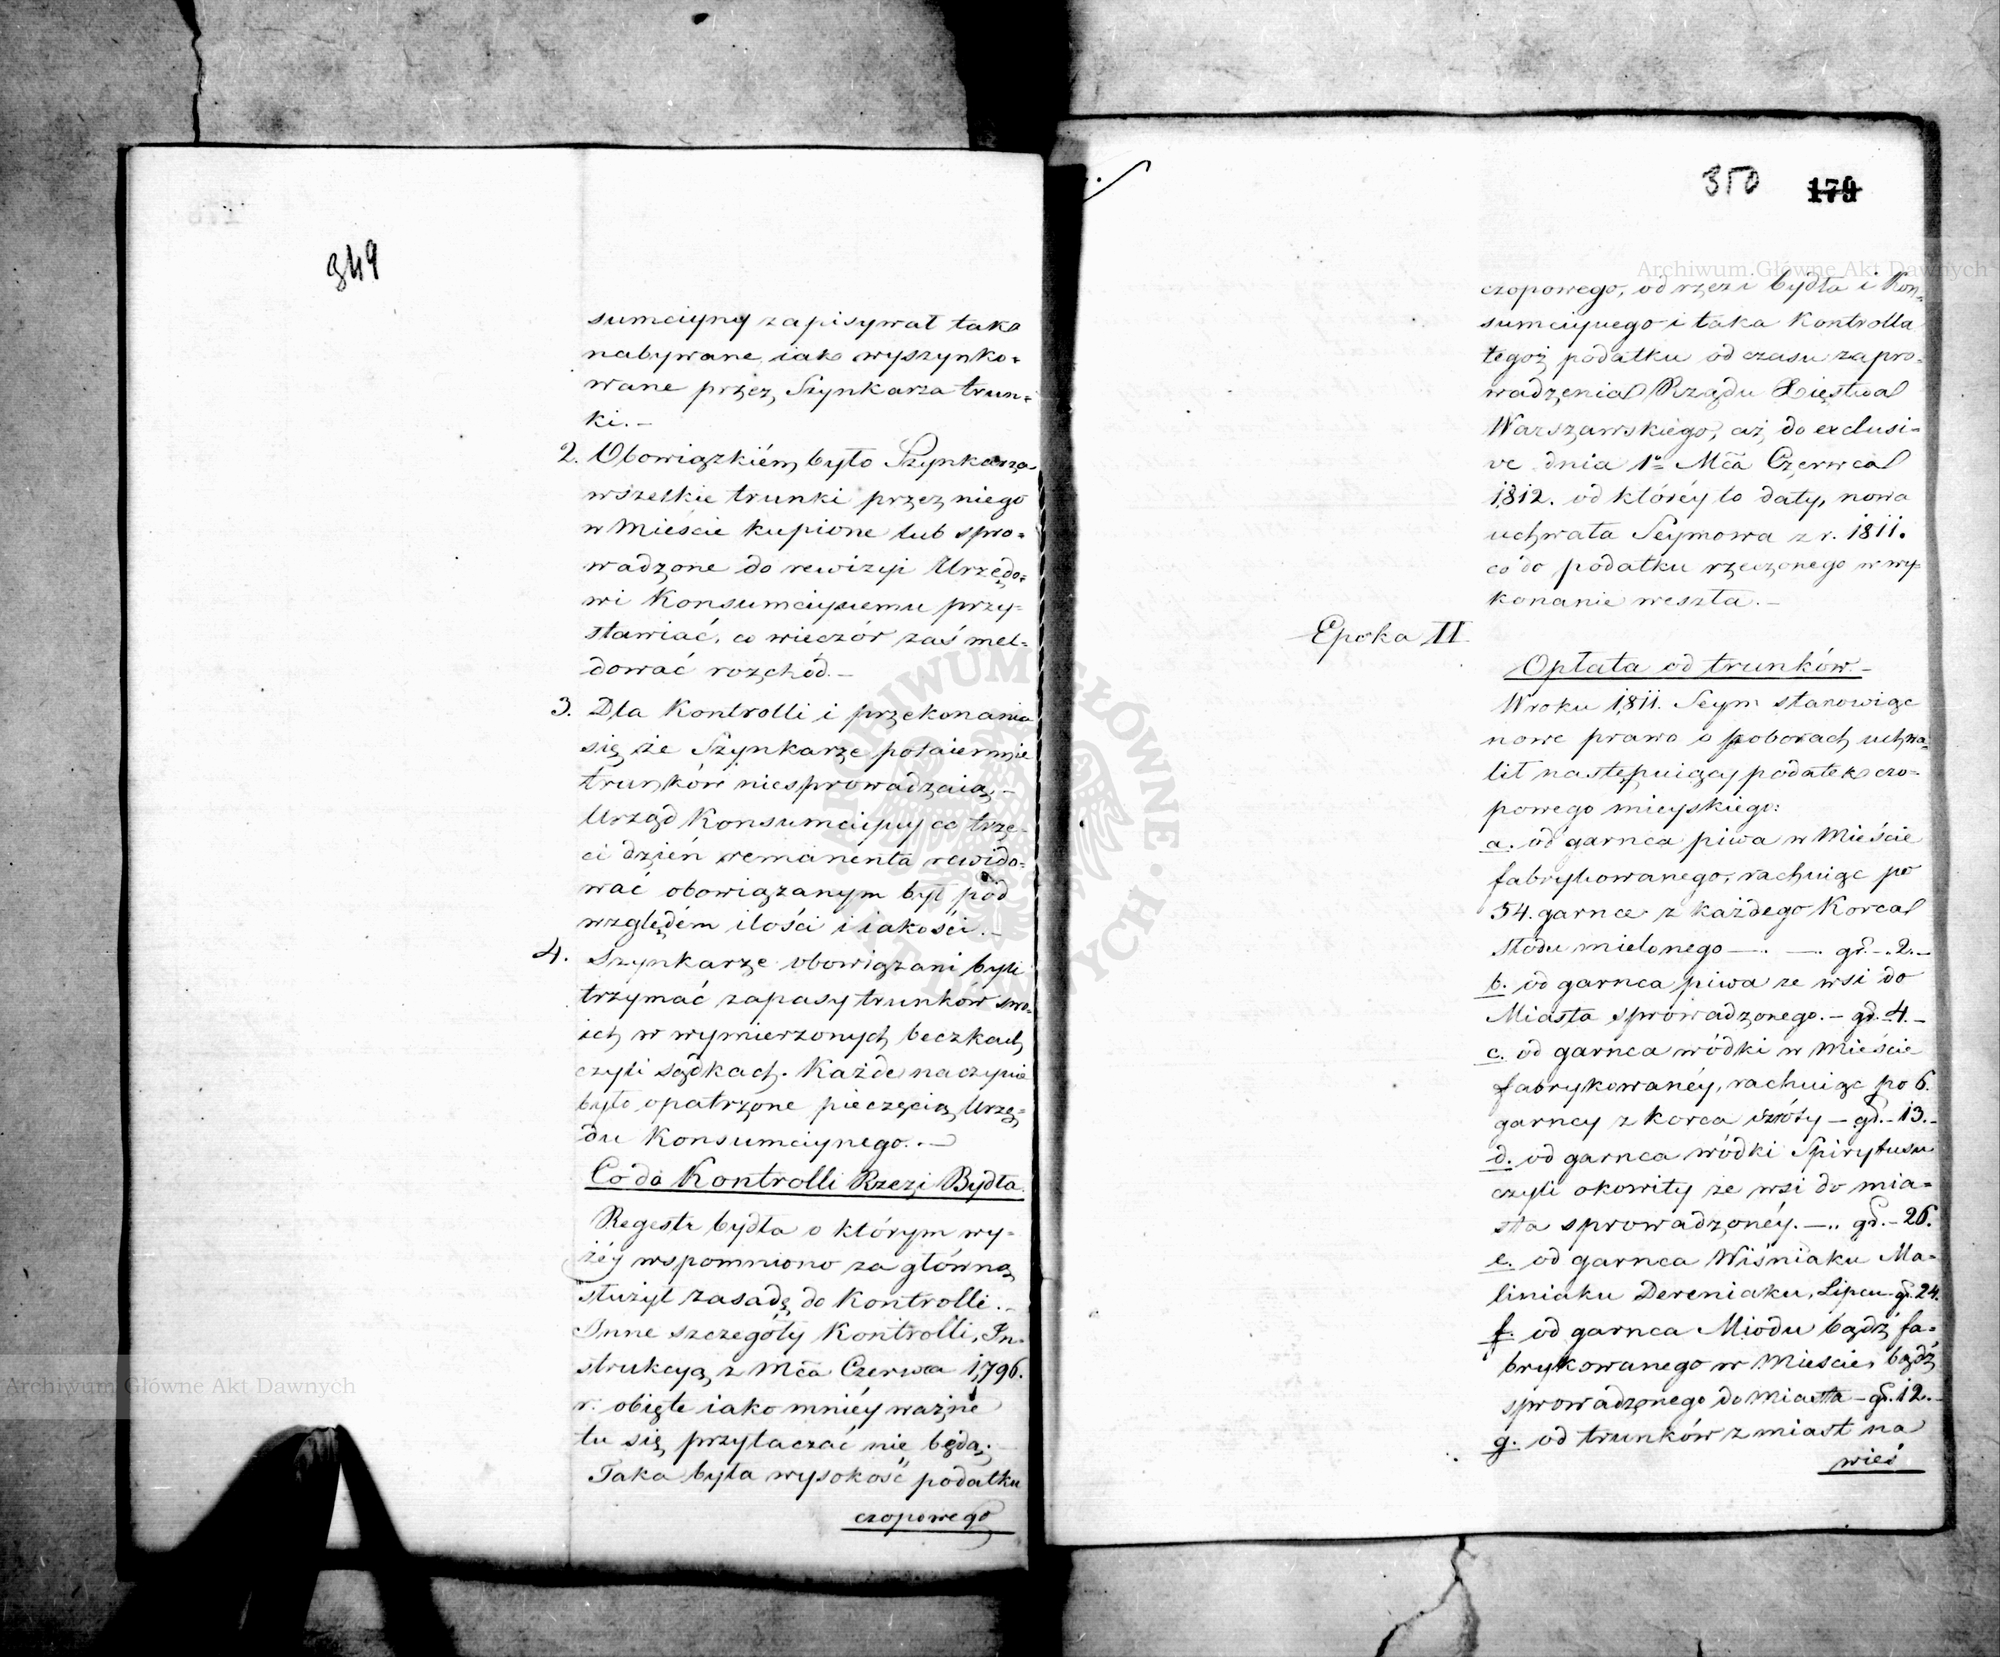 349
sumcyiny zapisywał tako
nabywane iako wyszynko=
wane przez Szynkarza trun=
ki.–
2. Obowiązkiém było Szynkarza
wszelkie trunki przez niego
w Mieście kupione lub spro=
wadzone do rewizyi Urzędo=
wi Konsumcyinemu przy=
stawiać, co wieczór zaś mel=
dować rozchód.–
3. Dla Kontrolli i przekonania
się że Szynkarze potaiemnie
trunków niesprowadzaią,–
Urząd Konsumcyiny co trze=
ci dzień remanenta rewido=
wać obowiązanym był pod
względem ilości i iakości.–
4. Szynkarze obowiązani byli
trzymać zapasy trunków swo=
ich w wymierzonych beczkach
czyli sądkach. Każde naczynie
było opatrzone pieczęcią Urzę=
du Konsumcyinego.–
Co do Kontrolli Rzezi Bydła.
Regestr bydła o którym wy=
żéy wspomniono za główną
służył zasadę do Kontrolli.–
Inne szczegóły Kontrolli, In=
strukcyą z Mca Czerwca 1796.
r. obięte iako mniéy ważne
tu się przytaczać nie będą.–
Taka była wysokość podatku
czopowego
350 179
czopowego, od rzezi bydła i Kon=
sumcyinego i taka Kontrolla
tegoż podatku od czasu zapro=
wadzenia Rządu Xięstwa
Warszawskiego, aż do exclusi=
ve dnia 1o Mca Czerwca
1812. od któréy to daty, nowa
uchwała Seymowa z r. 1811.
co do podatku rzeczonego w wy=
konanie weszła.–
Epoka II
Opłata od trunków.–
W roku 1811. Seym stanowiąc
nowe prawo o poborach uchwa=
lił następuiący podatek czo=
powego mieyskiego:
a. od garnca piwa w Mieście
fabrykowanego, rachuiąc po
54. garnce z każdego Korca
słodu mielonego – . – gr. – 2.–
b. od garnca piwa ze wsi do
Miasta sprowadzonego. – gr. 4.–
c. od garnca wódki w Mieście
fabrykowanéy, rachuiąc po 6.
garncy z korca szróty – gr. – 13.–
d. od garnca wódki Spirytusu
czyli okowity ze wsi do mia=
sta sprowadzonéy. – .. gr. – 26.
e. od garnca Wiśniaku Ma=
liniaku Dereniaku, Lipcu – gr. 24.
f. od garnca Miodu bądź fa=
brykowanego w Mieście, bądź
sprowadzonego do Miasta – gr. 12.–
g. od trunków z miast na
wieś
Archiwum Główne Akt Dawnych
Archiwum Główne Akt Dawnych
ARCHIWUM GŁÓWNE AKT DAWNYCH